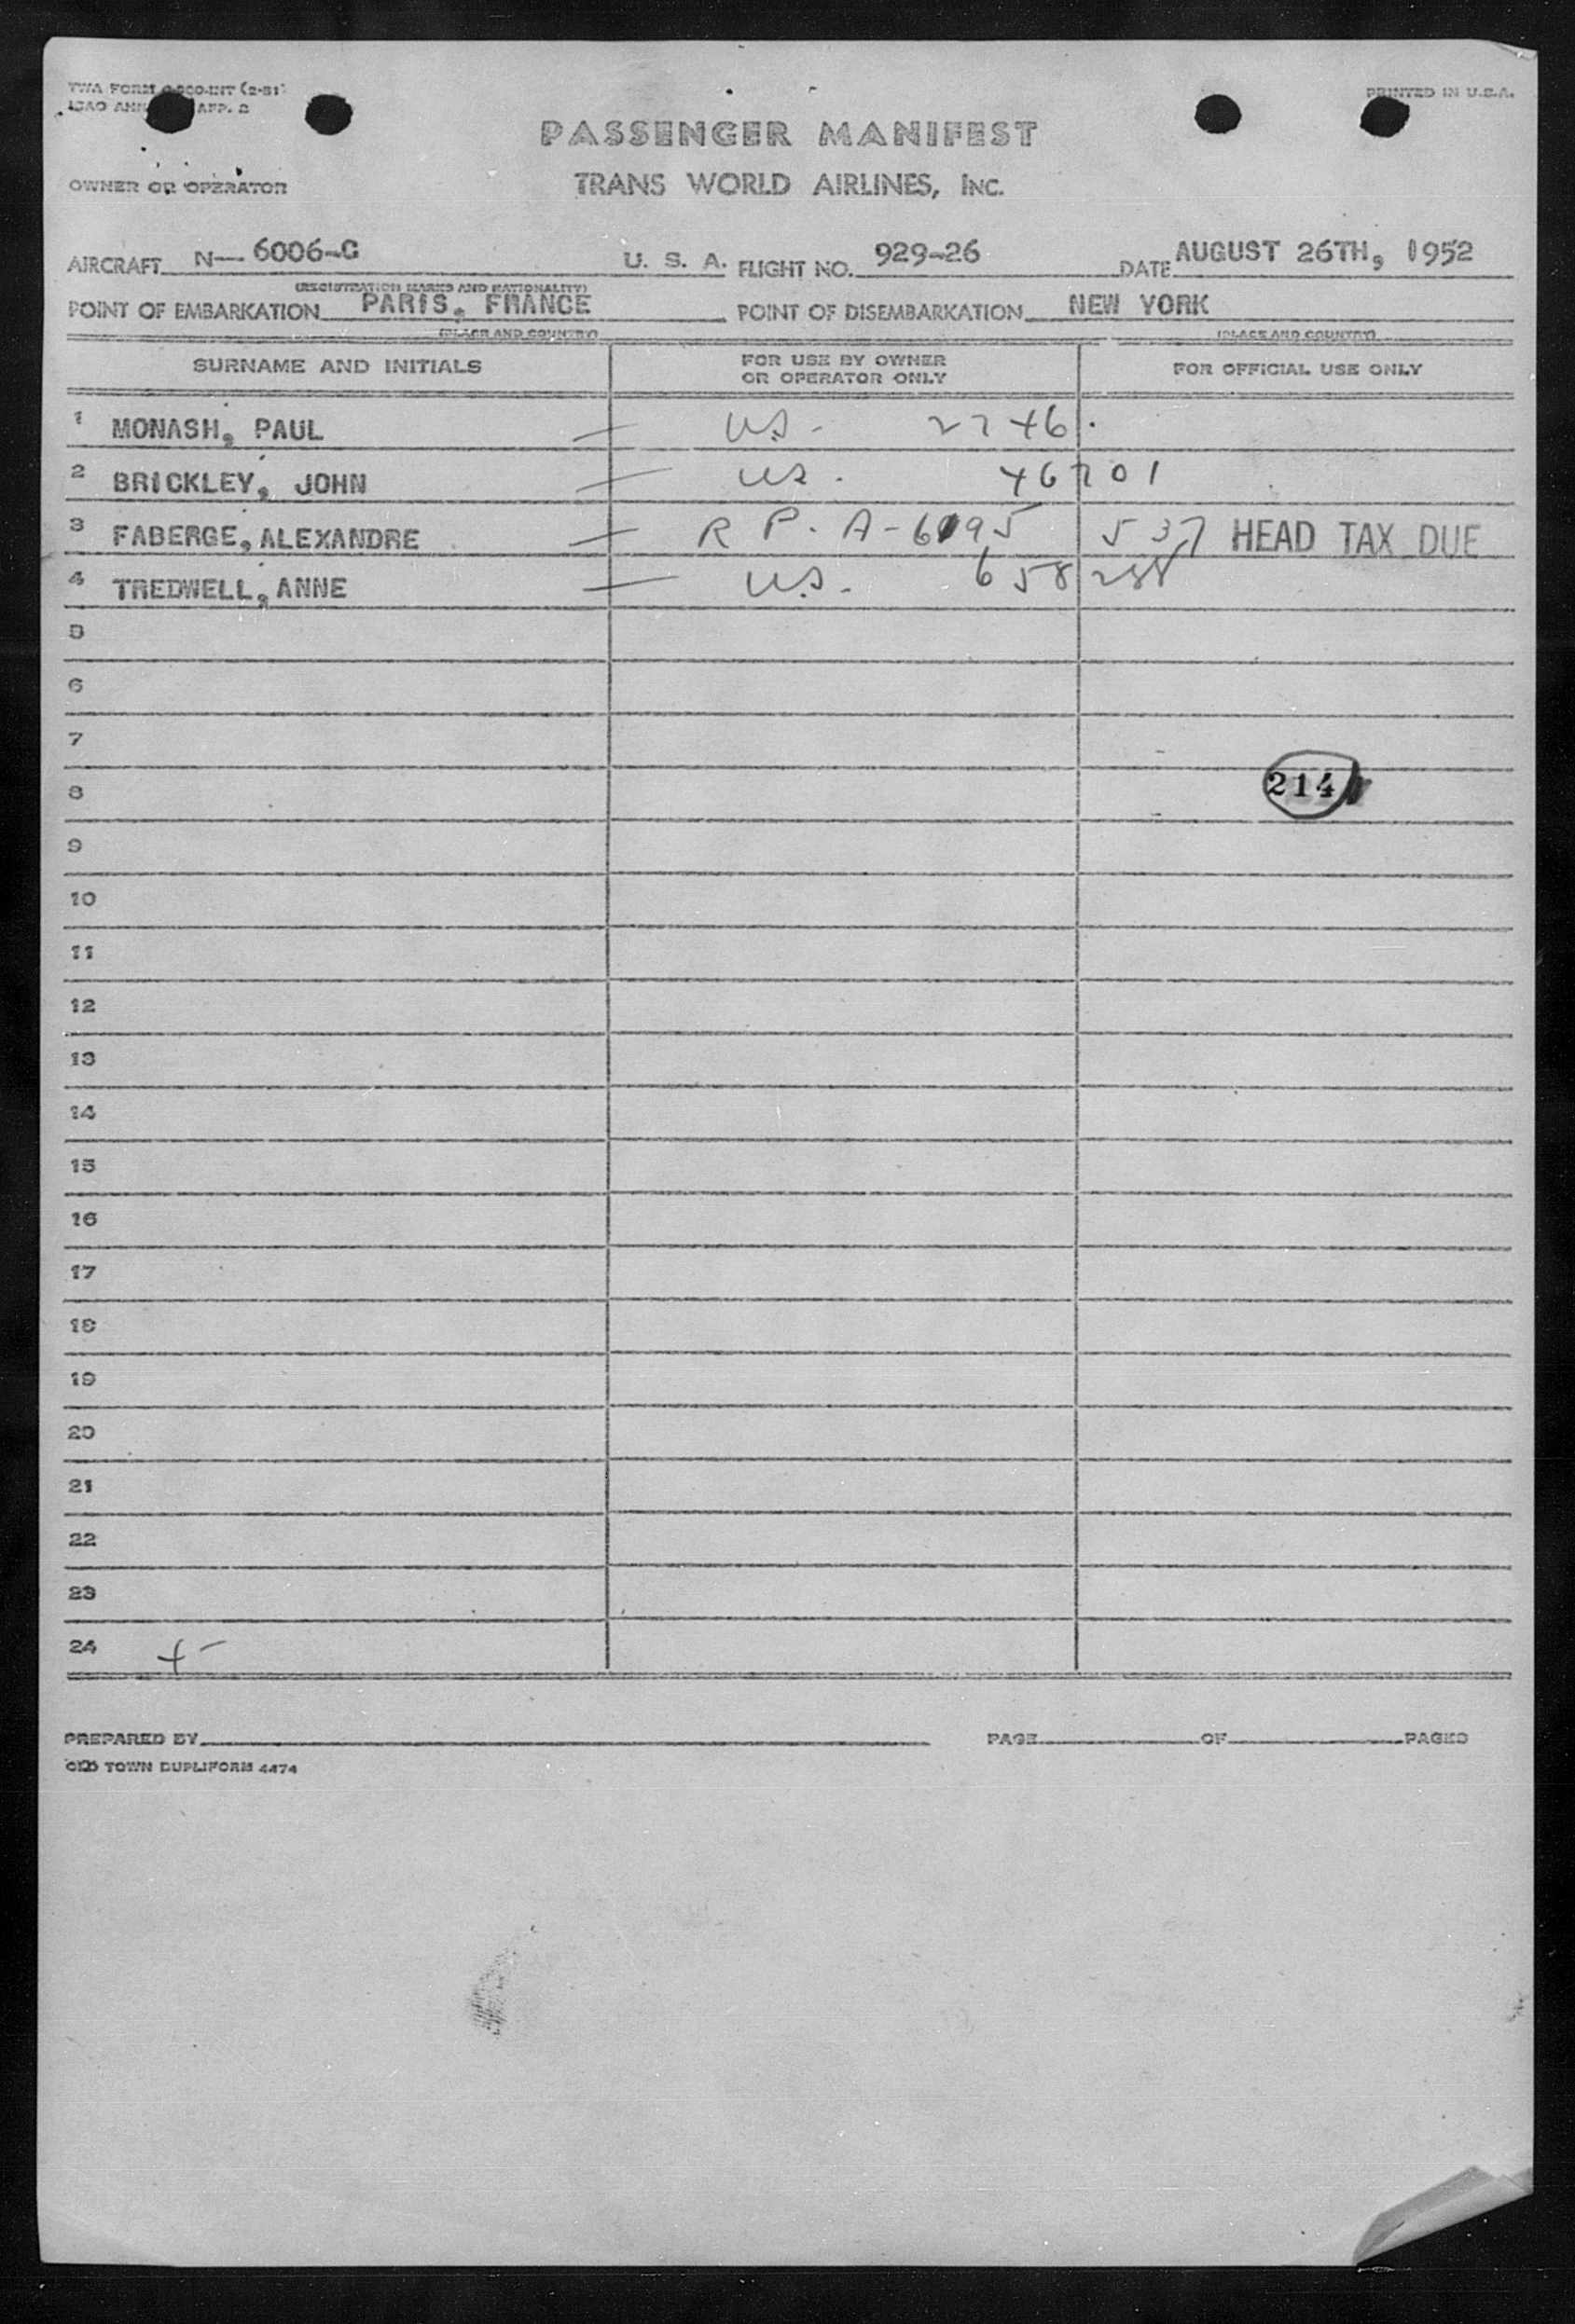 TWA FORM
PRINTED IN U.S.A.
PASSENGER MANIFEST
OWNER OR OPERATOR
TRANS WORLD AIRLINES, INC.
AIRCRAFT N— 6006-C U. S. A. FLIGHT NO. 929-26 DATE AUGUST 26TH, 1952
(REGISTRATION MARKS AND NATIONALITY)
POINT OF EMBARKATION PARIS, FRANCE POINT OF DISEMBARKATION NEW YORK
(PLACE AND COUNTRY) (PLACE AND COUNTRY)
SURNAME AND INITIALS FOR USE BY OWNER OR OPERATOR ONLY FOR OFFICIAL USE ONLY
1 MONASH, PAUL — U.S. - 2746
2 BRICKLEY, JOHN — U.S. - 46701
3 FABERGE, ALEXANDRE — R P. A-6195 537 HEAD TAX DUE
4 TREDWELL, ANNE — U.S. - 658288
5
6
7
8 214
9
10
11
12
13
14
15
16
17
18
19
20
21
22
23
24
PREPARED BY PAGE OF PAGES
OLD TOWN DUPLIFORM 4474